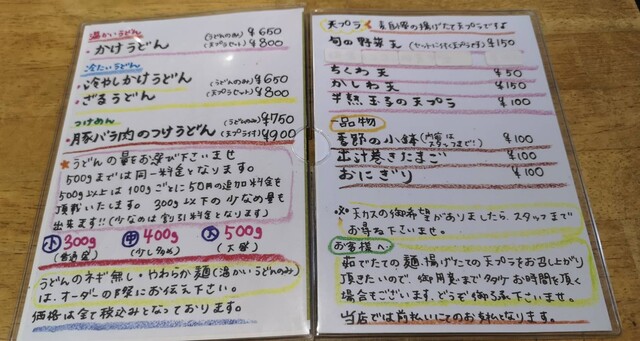 温かいうどん
・かけうどん (うどんのみ)¥650
(天プラセット)¥800
冷たいうどん
・冷やしかけうどん (うどんのみ)¥650
・ざるうどん (天プラセット)¥800
つけめん
・豚バラ肉のつけうどん (うどんのみ)¥750
(天プラ付)¥900
★うどんの量をお選び下さいませ
500gまでは同一料金となります。
500g以上は100gごとに50円の追加料金を
頂戴いたします。300g以下の少なめの量も
出来ます!!(少なめは割引料金となります)
小300g 中400g 大500g
(普通盛) (少し多め) (大盛)
うどんのネギ無し・やわらか麺(温かいうどんのみ)
は、オーダーの際にお伝え下さい。
価格は全て税込みとなっております。
天プラ 自家製の揚げたて天プラです♪
旬の野菜天 (セットに付く天プラです)¥150
ちくわ天 ¥50
かしわ天 ¥150
半熟玉子の天プラ ¥100
一品物
季節の小鉢(内容はスタッフまで!!) ¥100
出汁巻きたまご ¥100
おにぎり ¥100
※天カスの御希望がありましたら、スタッフまで
お尋ね下さいませ。
お客様へ
茹でたての麺、揚げたての天プラをお召し上がり
頂きたいので、御用意まで少々お時間を頂く
場合もございます。どうぞ御了承下さいませ。
当店では前払いにてのお支払となります。